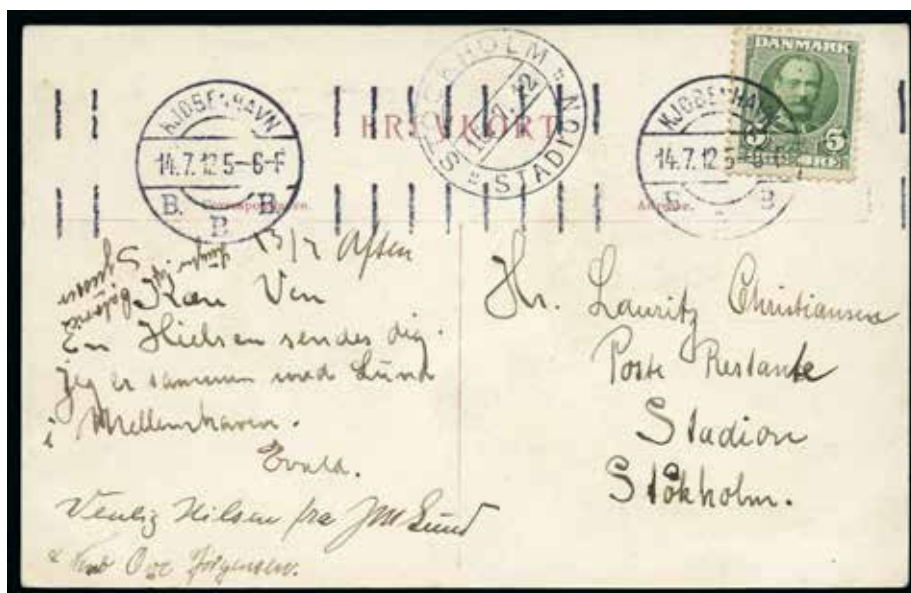 DANMARK
5 5
KJØBENHAVN
14.7.12 5-6-F
B. B B
STOCKHOLM
16.7.12
STADION
KJØBENHAVN
14.7.12 5-6-F
B B
BREVKORT
Correspondance.
Adresse.
13/7 Aften
Kære Ven
En Hielsen sendes dig.
jeg er sammen med Lund
i Mellemhaven.
Evald.
Venlig Hilsen fra JM Lund
Ove Jörgensen.
Hr. Lauritz Christiansen
Poste Restante
Stadion
Stökholm.